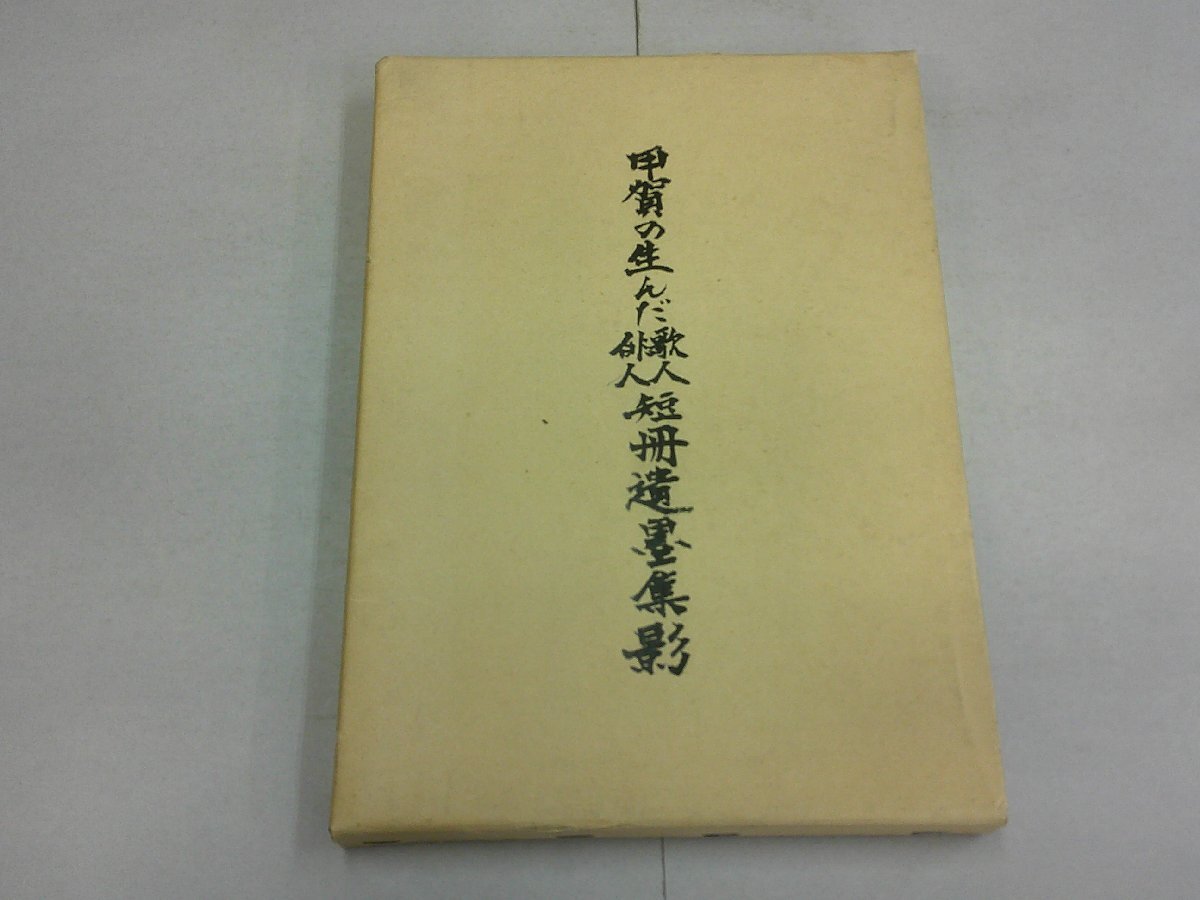 甲賀の生んだ歌人俳人短冊遺墨集影